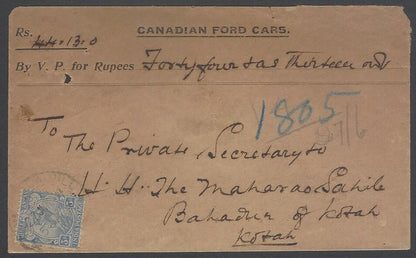 CANADIAN FORD CARS.
Rs. 44.13.0
By V. P. for Rupees Forty four & as Thirteen only
1805
To
The Private Secretary to
H. H. The Maharao Sahib
Bahadur of Kotah
Kotah